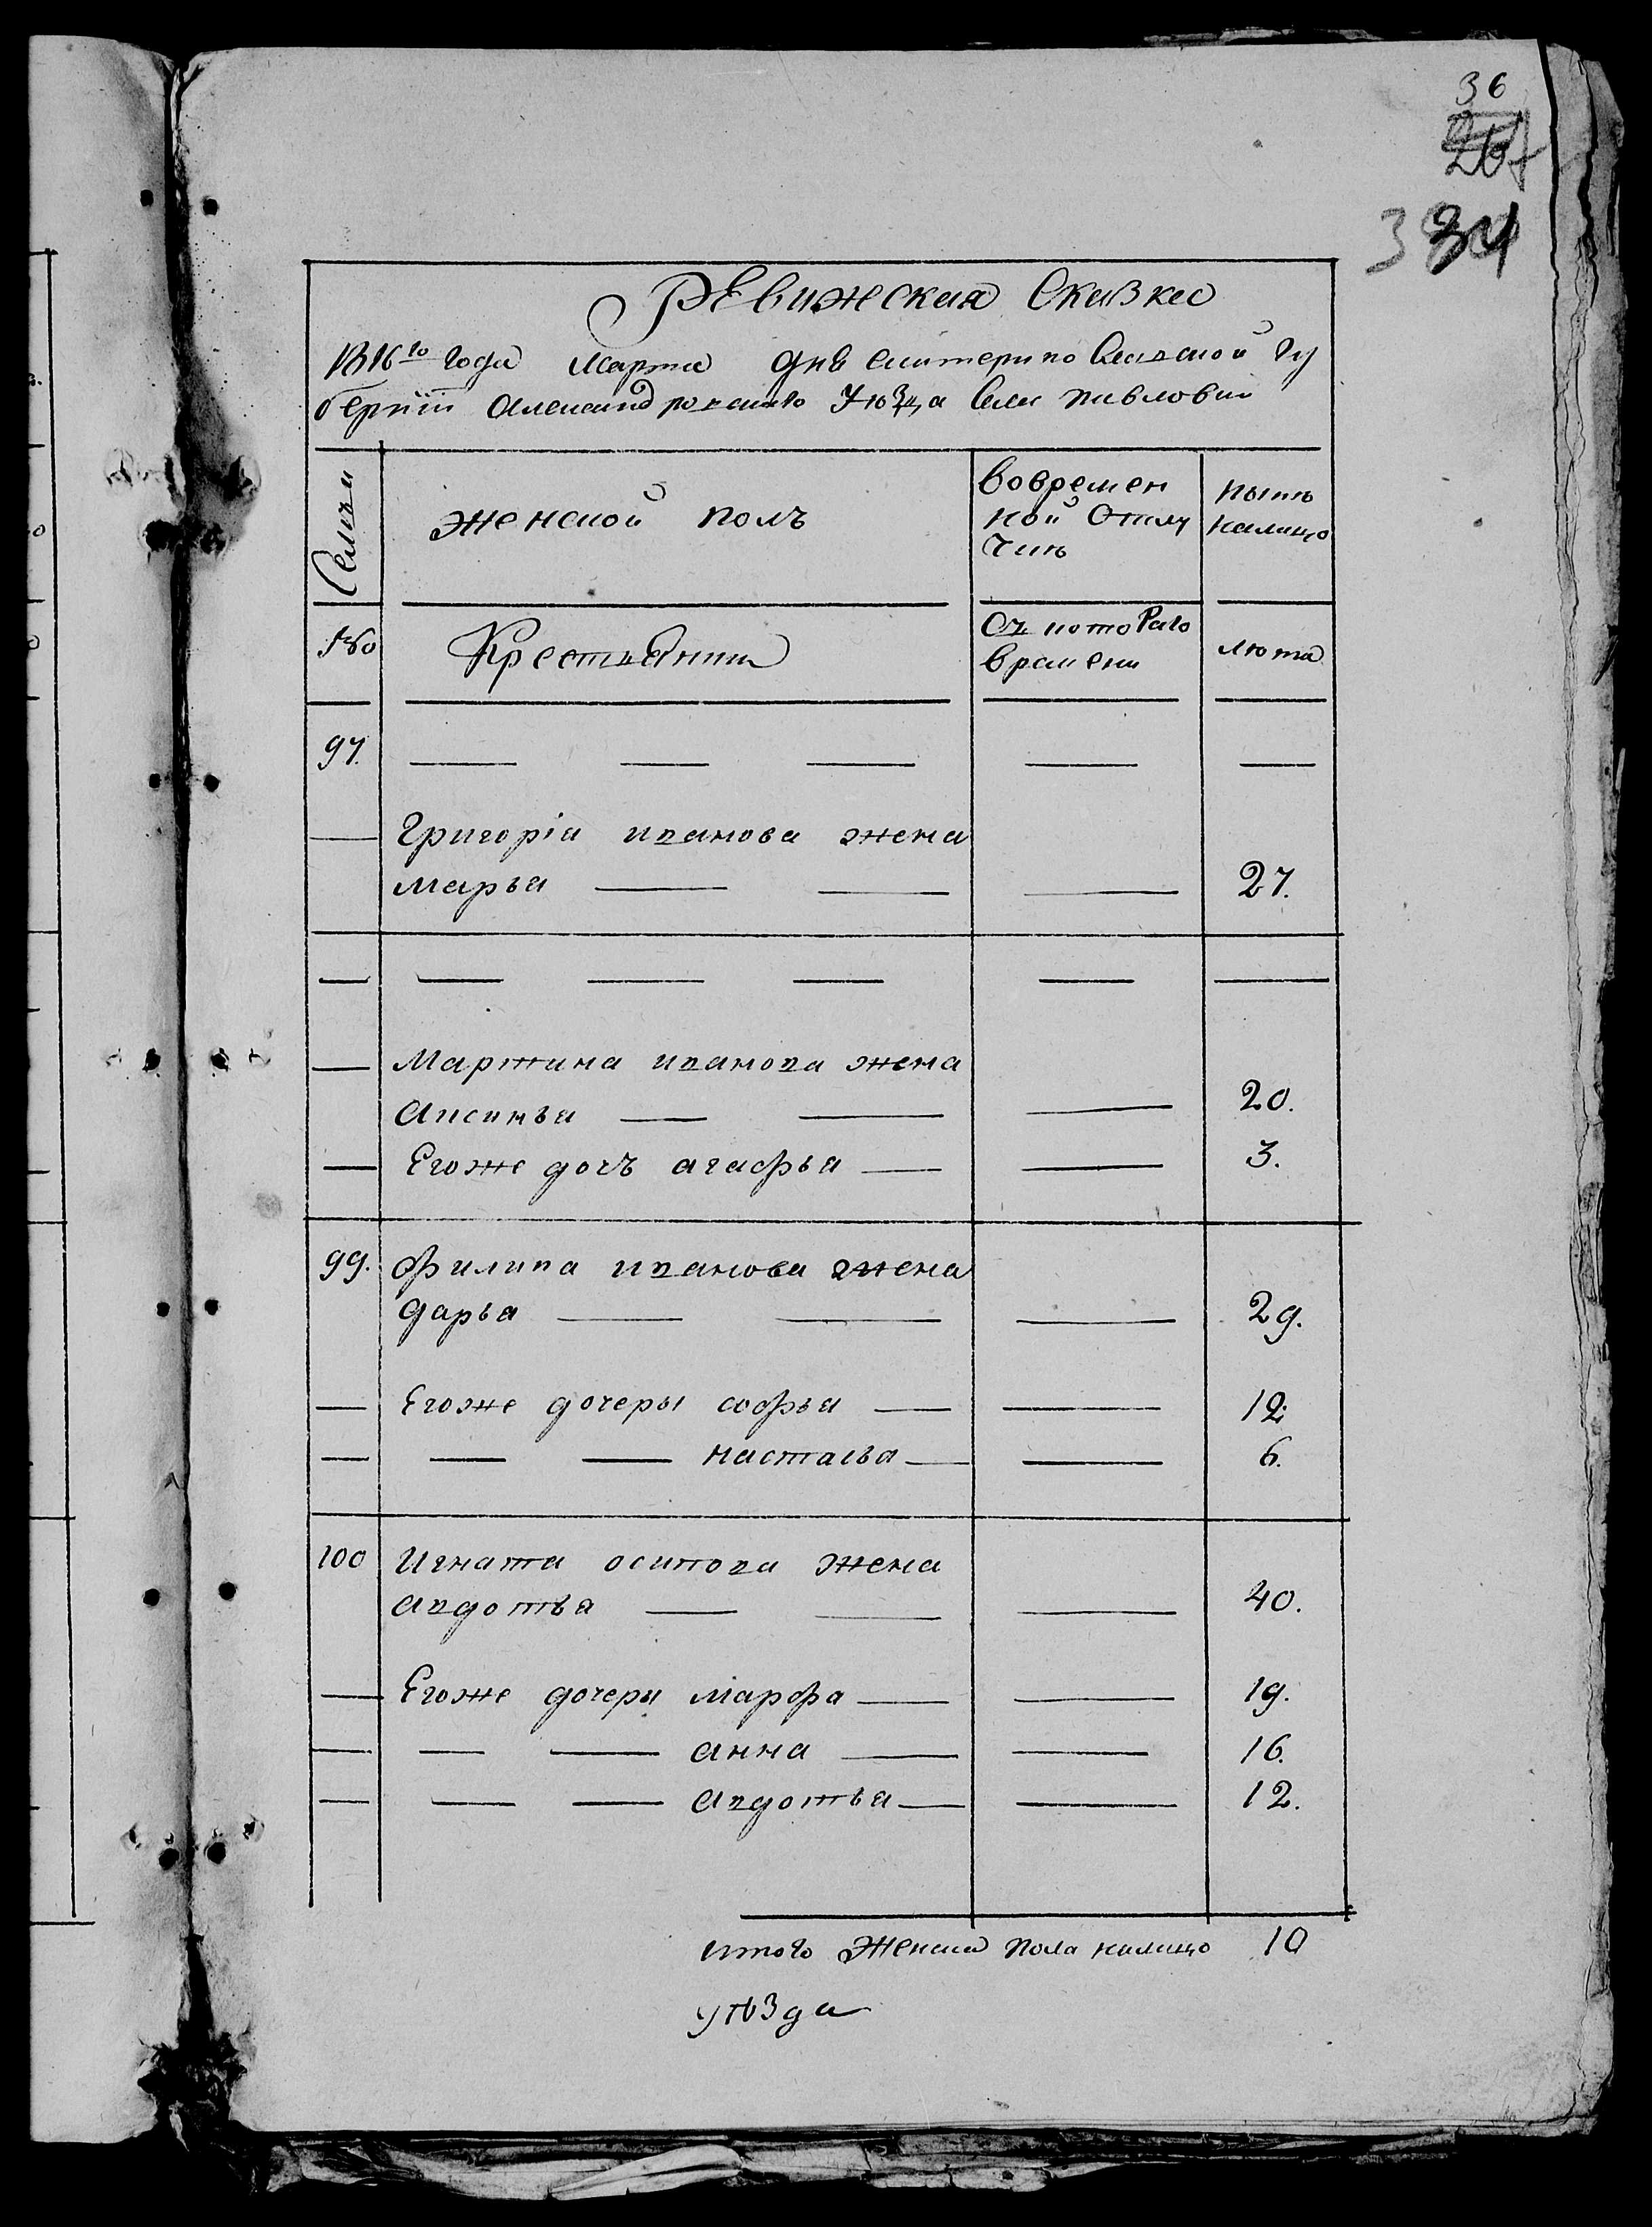 36
384
Ревижская Сказка
1816го года Марта дня екатеринославской гу
бернїи Александровскаго Уѣзда Села павловки
Семьи
женской полъ
вовремен
ной отлу
чкѣ
нынѣ
налицо
№
Крестьянки
Съ котораго
времени
лѣта
97. — — — — —
— Григорія иванова жена
марья — — — 27.
— — — — — —
— Мартина иванова жена
аксинья — — — 20.
— Егоже дочъ агафья — — 3.
99. филипа иванова жена
дарья — — — 29.
— Егоже дочеры софья — — 12.
— — — настасья — — 6.
100 Игната осипова жена
авдотья — — — 40.
— Егоже дочеры марфа — — 19.
— — — анна — — 16.
— — — авдотья — — 12.
итого женска пола налицо 10
уѣзда